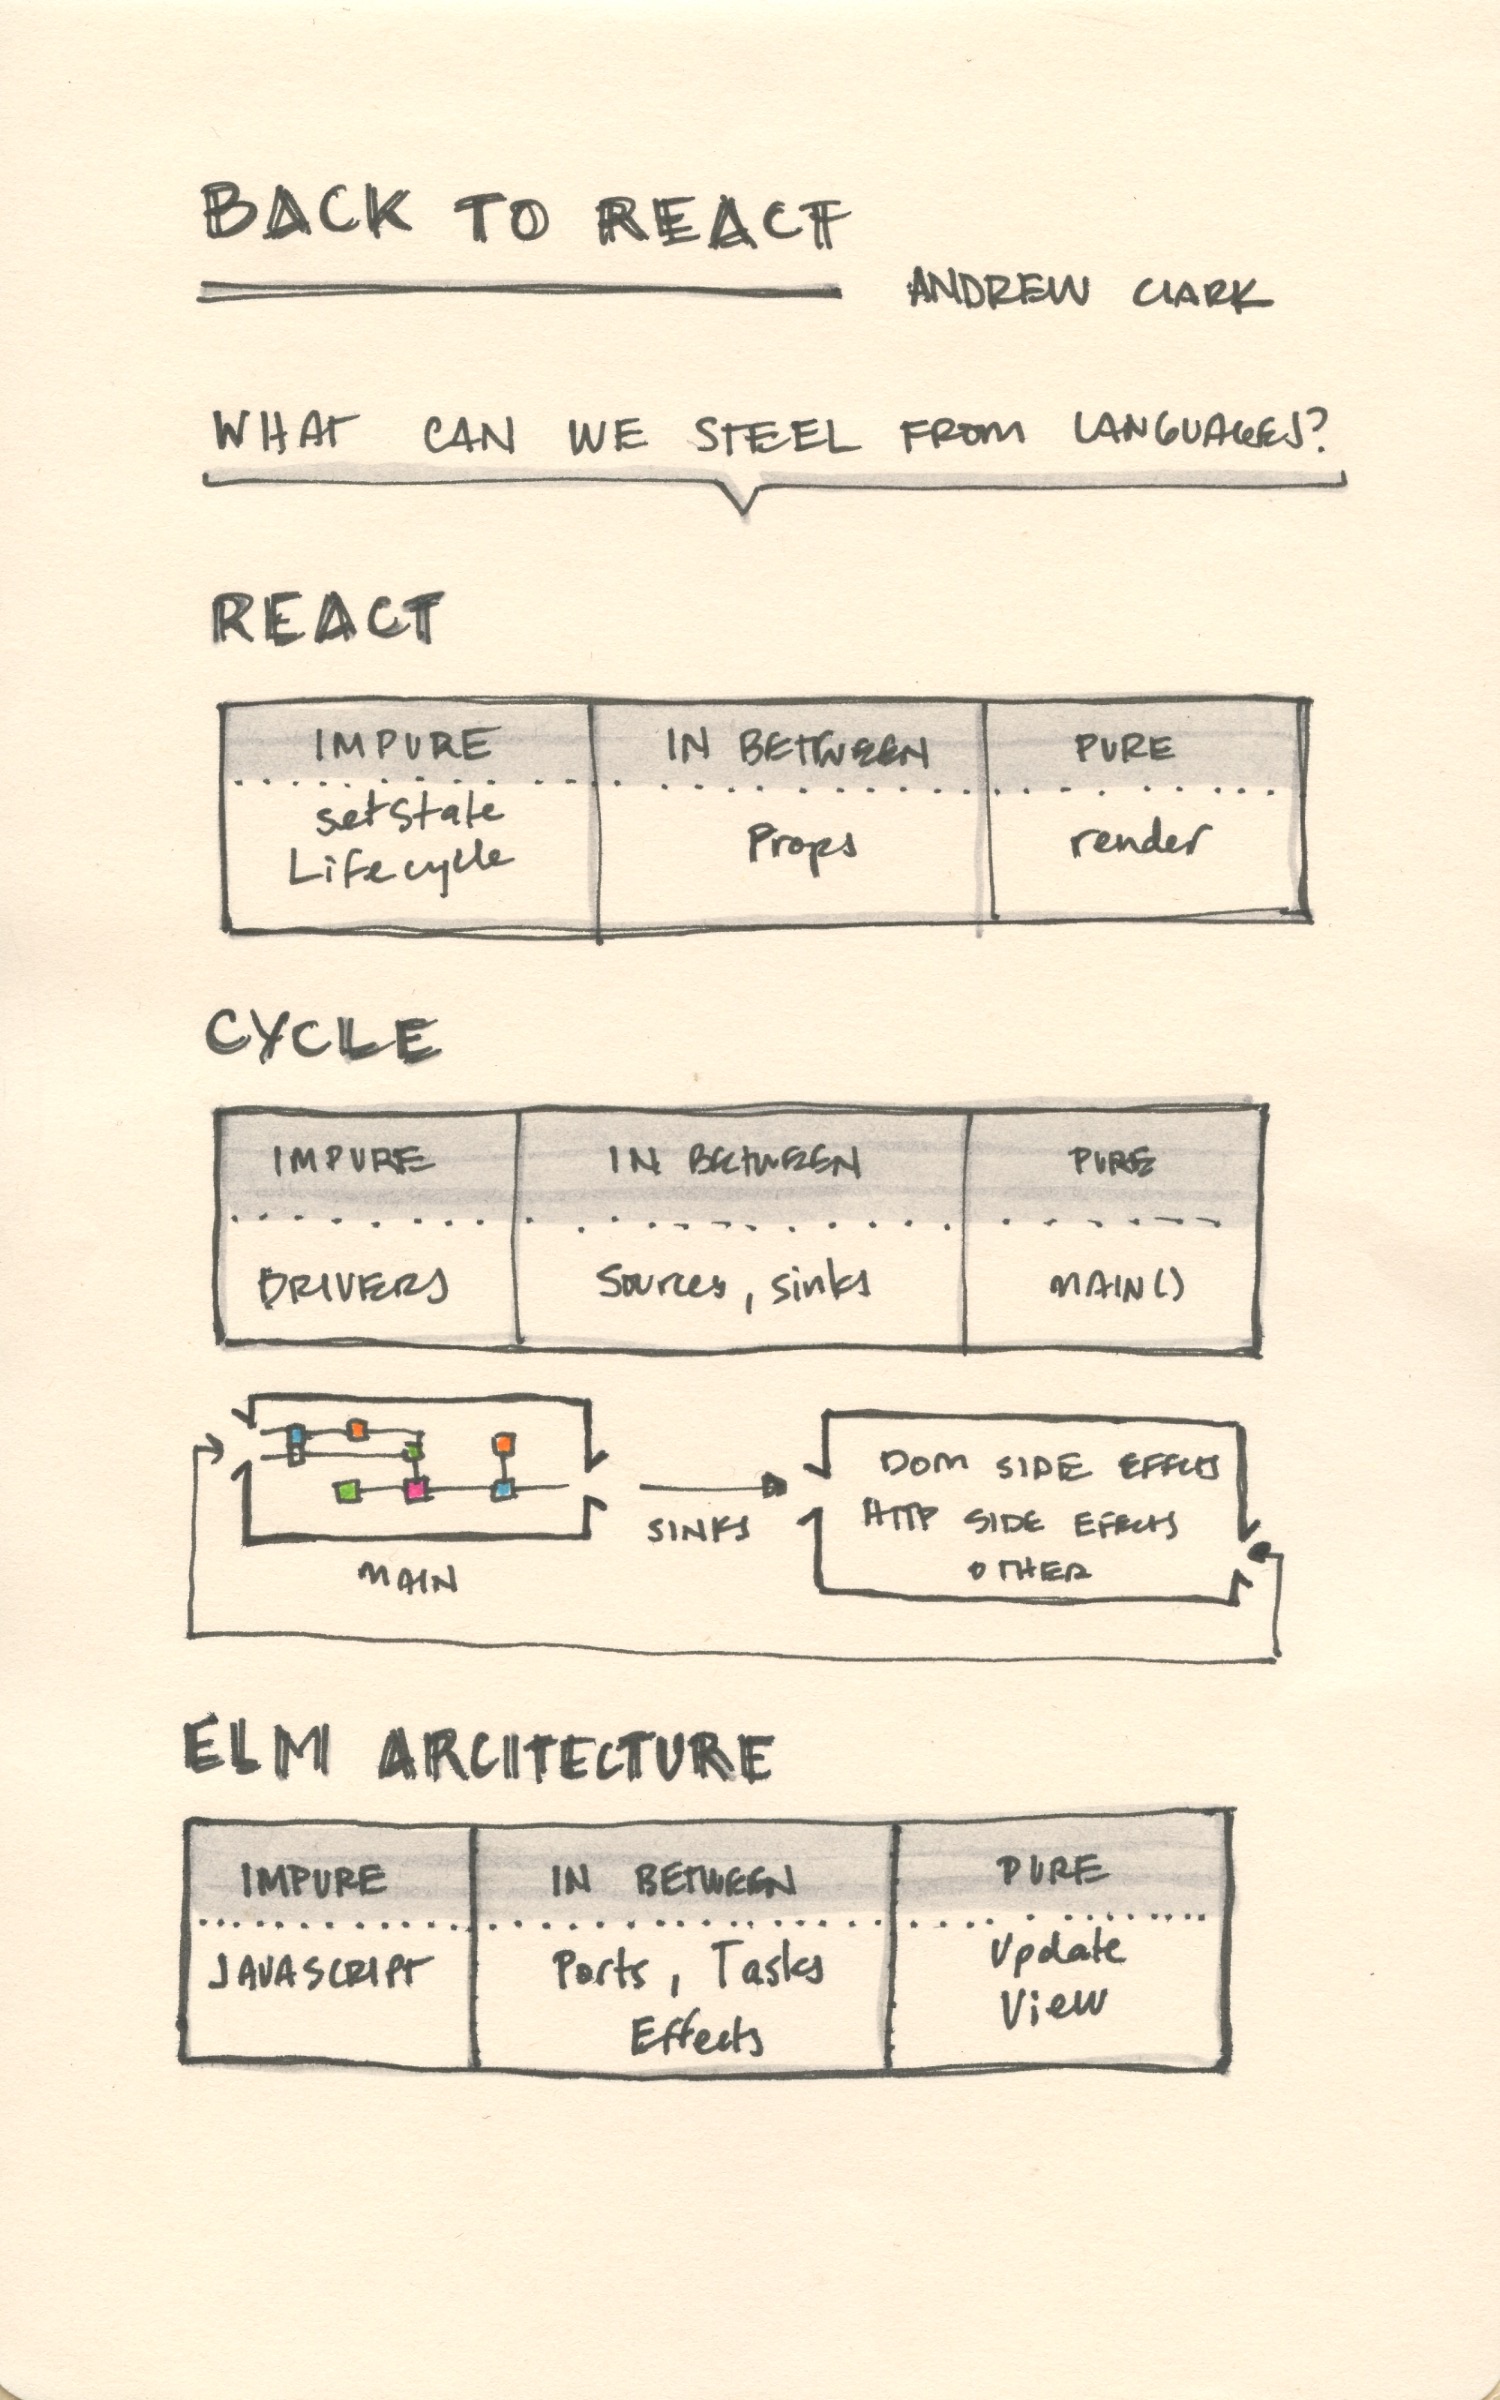 BACK TO REACT
ANDREW CLARK
WHAT CAN WE STEEL FROM LANGUAGES?
REACT
IMPURE IN BETWEEN PURE
setState Props render
Lifecycle
CYCLE
IMPURE IN BETWEEN PURE
DRIVERS Sources, sinks MAIN()
DOM SIDE EFFECTS
HTTP SIDE EFFECTS
OTHER
SINKS
MAIN
ELM ARCITECTURE
IMPURE IN BETWEEN PURE
JAVASCRIPT Ports, Tasks Update
Effects View